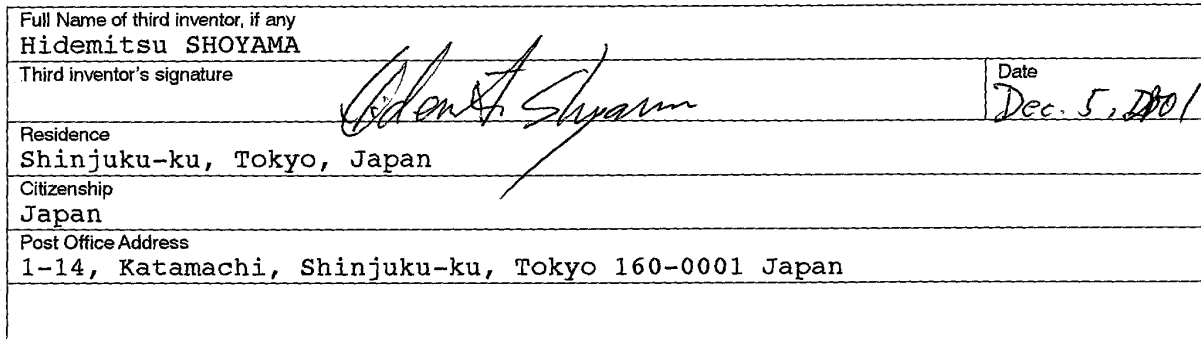 Full Name of third inventor, if any
Hidemitsu SHOYAMA
Third inventor's signature
Hidemitsu Shoyama
Date
Dec. 5, 2001
Residence
Shinjuku-ku, Tokyo, Japan
Citizenship
Japan
Post Office Address
1-14, Katamachi, Shinjuku-ku, Tokyo 160-0001 Japan